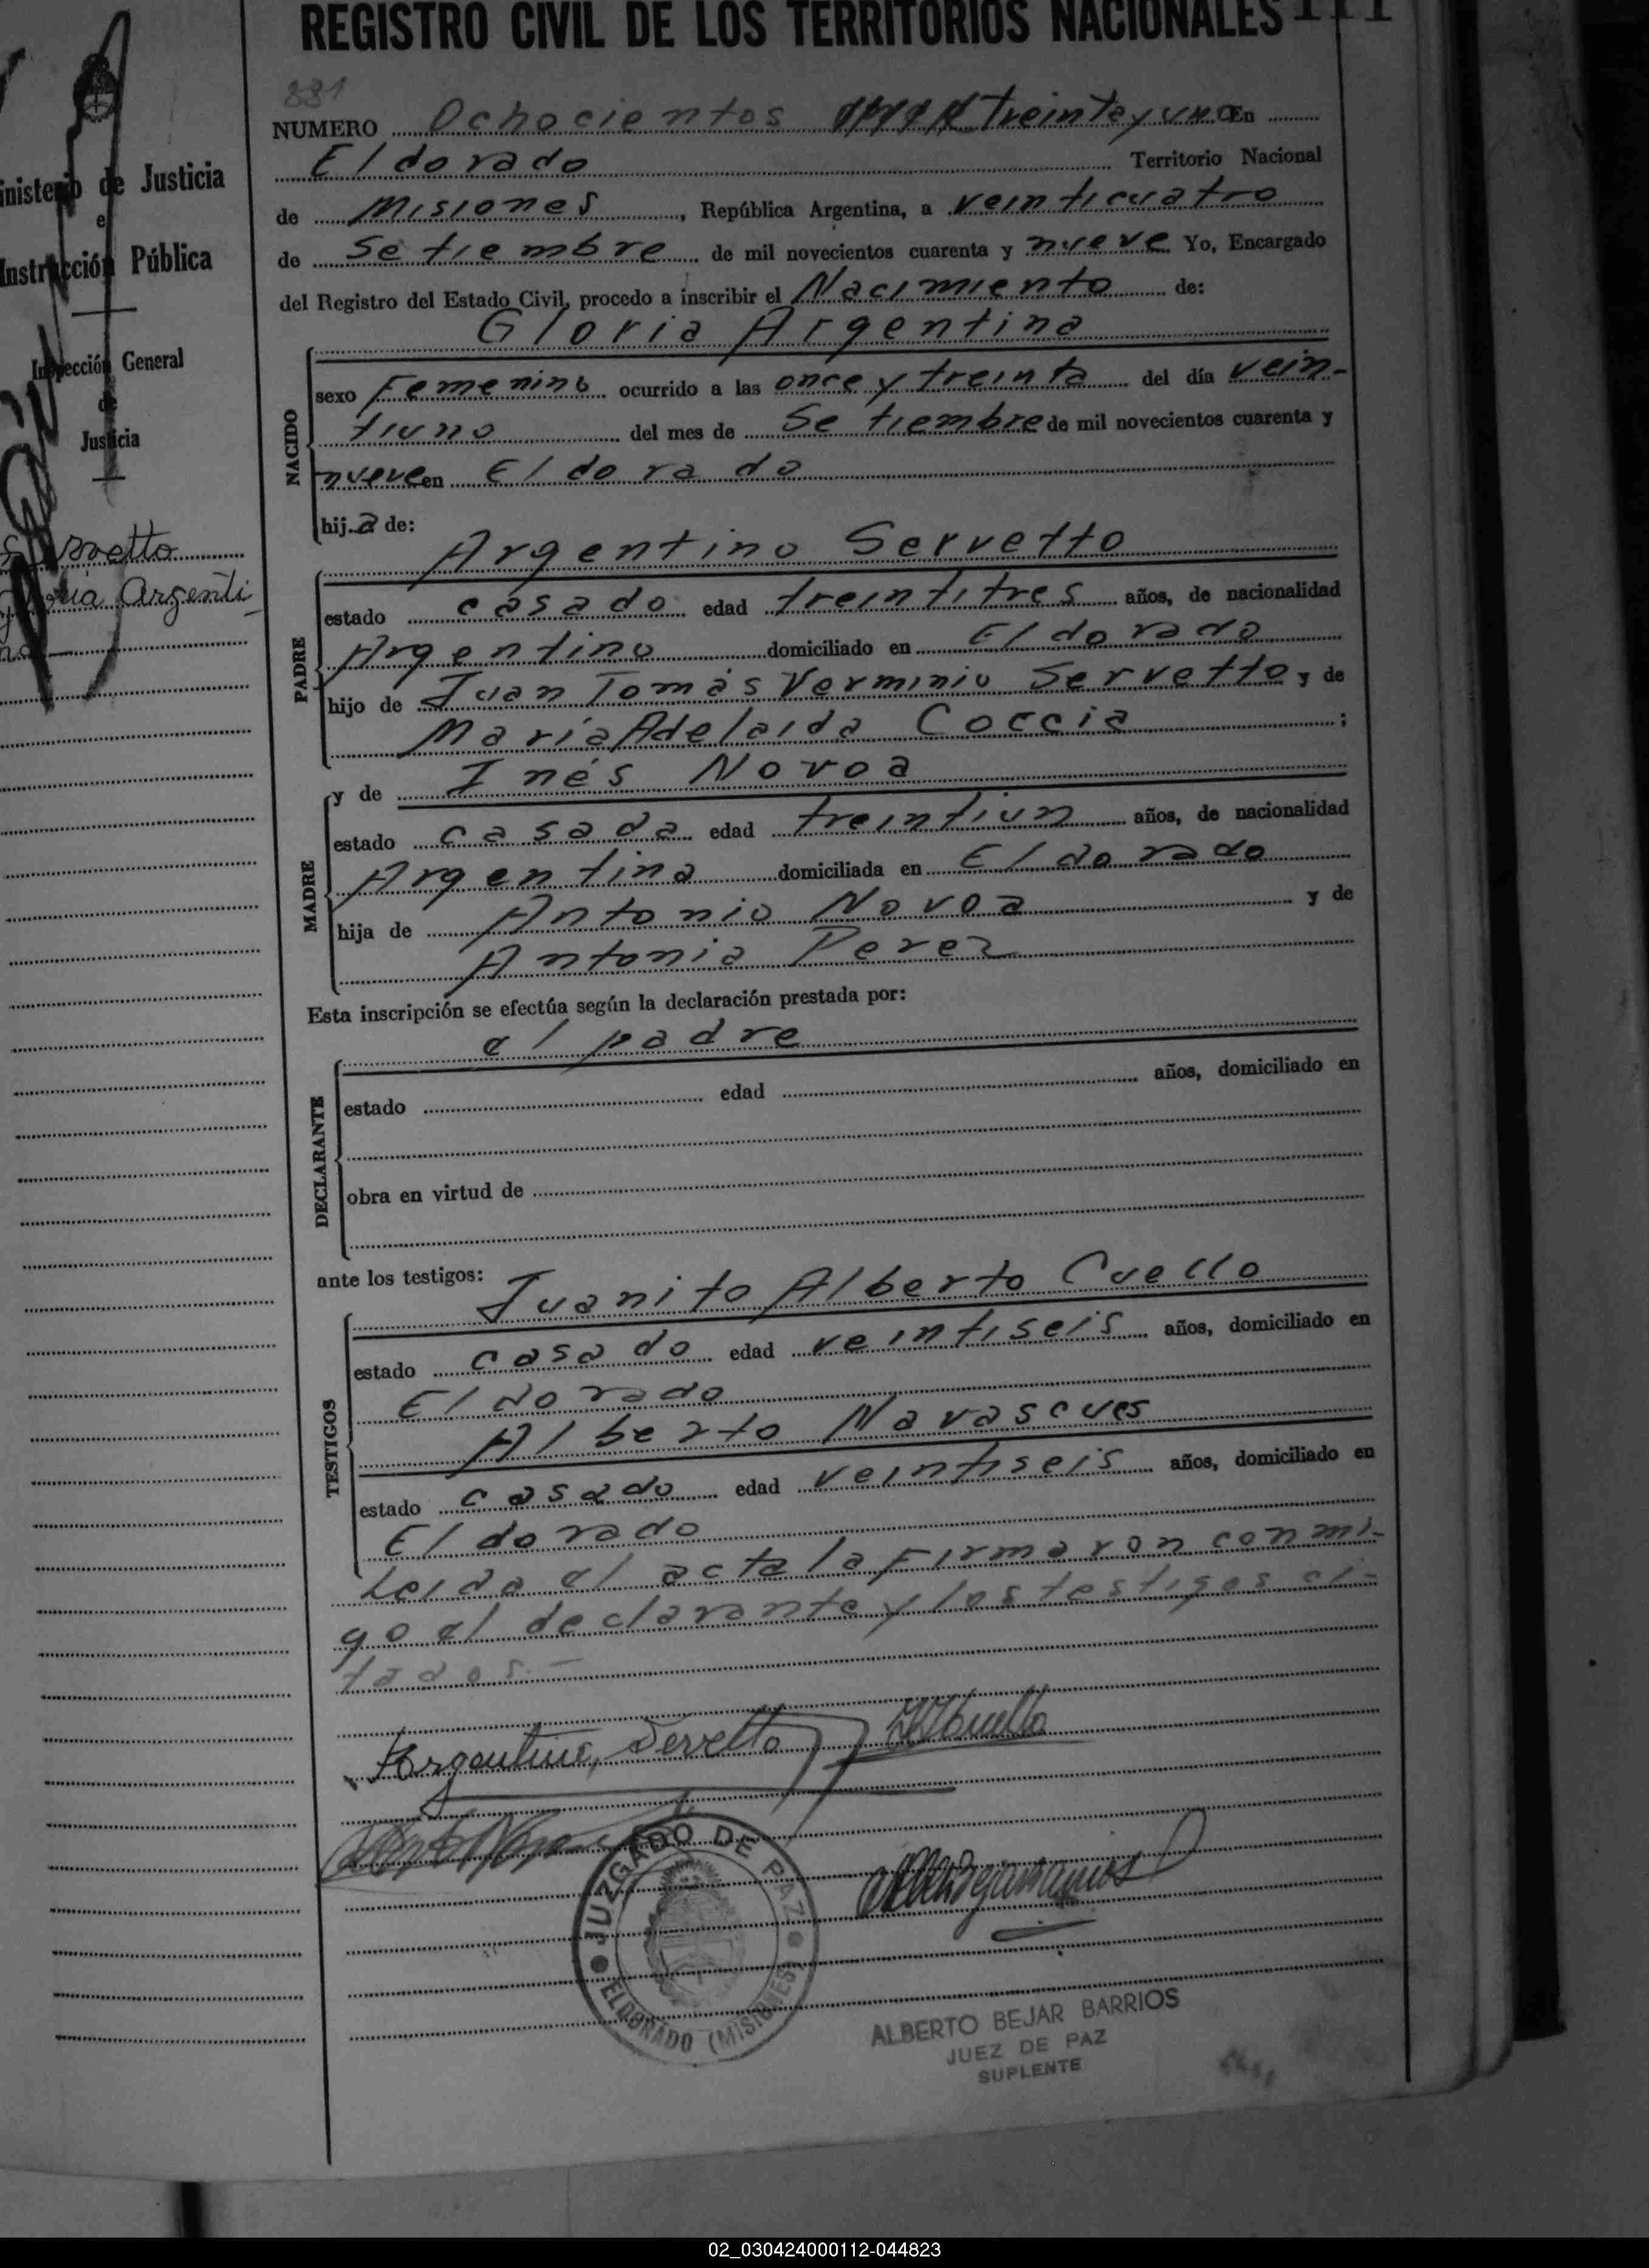 REGISTRO CIVIL DE LOS TERRITORIOS NACIONALES 111
831
NUMERO Ochocientos treinta y uno En
Eldorado Territorio Nacional
de Misiones, República Argentina, a veinticuatro
de Setiembre de mil novecientos cuarenta y nueve Yo, Encargado
del Registro del Estado Civil, procedo a inscribir el Nacimiento de:
Gloria Argentina
NACIDO
sexo Femenino ocurrido a las once y treinta del día vein-
tiuno del mes de Setiembre de mil novecientos cuarenta y
nueve en Eldorado
hija de:
Argentino Servetto
PADRE
estado casado edad treintitres años, de nacionalidad
Argentino domiciliado en Eldorado
hijo de Juan Tomás Verminio Servetto y de
María Adelaida Coccia ;
MADRE
y de Inés Novoa
estado casada edad treintiun años, de nacionalidad
Argentina domiciliada en Eldorado
hija de Antonio Novoa y de
Antonia Perez
Esta inscripción se efectúa según la declaración prestada por:
el padre
DECLARANTE
estado edad años, domiciliado en
obra en virtud de
ante los testigos:
Juanito Alberto Cuello
TESTIGOS
estado casado edad veintiseis años, domiciliado en
Eldorado
Alberto Navascues
estado casado edad veintiseis años, domiciliado en
Eldorado
Leida el acta la firmaron conmi-
go el declarante y los testigos ci-
tados.-
Argentino Servetto
JUZGADO DE PAZ
ELDORADO (MISIONES)
ALBERTO BEJAR BARRIOS
JUEZ DE PAZ
SUPLENTE
inisterio de Justicia
e
Instrucción Pública
Inspección General
de
Justicia
Servetto
Gloria Argenti
na
02_030424000112-044823